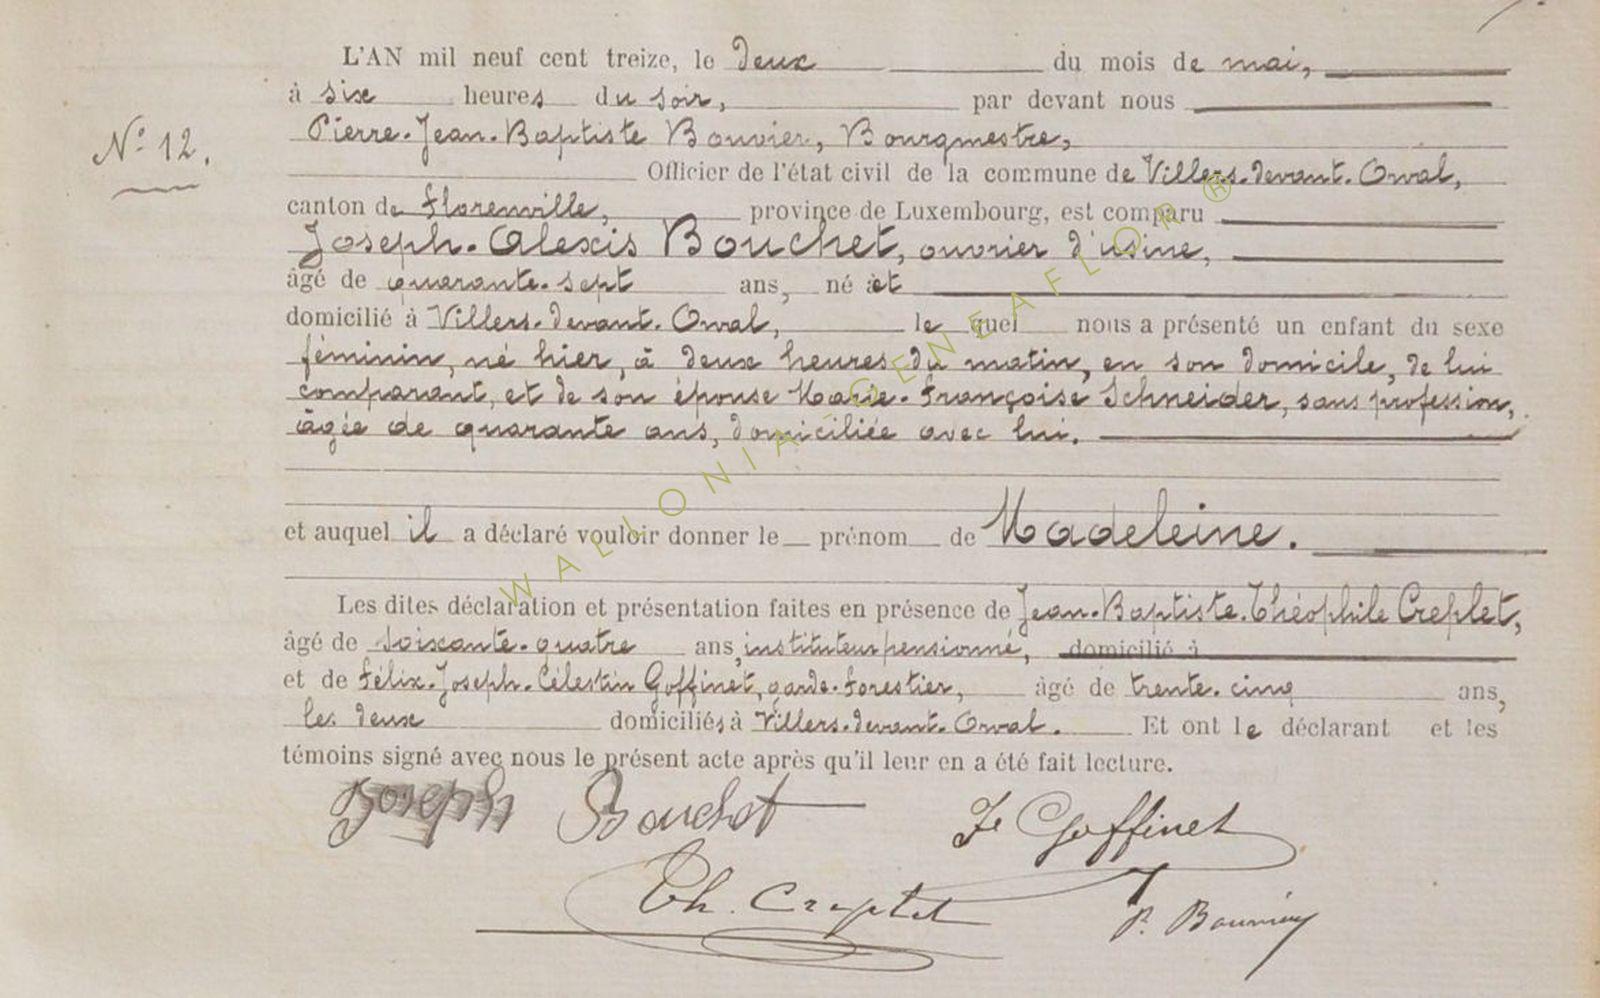 L'AN mil neuf cent treize, le deux du mois de mai,
à six heures du soir, par devant nous
Nº 12.
Pierre-Jean-Baptiste Bouvier, Bourgmestre,
Officier de l'état civil de la commune de Villers-devant-Orval,
canton de Florenville, province de Luxembourg, est comparu
Joseph-Alexis Bouchet, ouvrier d'usine,
âgé de quarante-sept ans, né et
domicilié à Villers-devant-Orval, le quel nous a présenté un enfant du sexe
féminin, né hier, à deux heures du matin, en son domicile, de lui
comparant, et de son épouse Marie-Françoise Schneider, sans profession,
âgée de quarante ans, domiciliée avec lui.
et auquel il a déclaré vouloir donner le prénom de Madeleine.
Les dites déclaration et présentation faites en présence de Jean-Baptiste-Théophile Creplet,
âgé de soixante-quatre ans, instituteur pensionné, domicilié à
et de Félix-Joseph-Célestin Goffinet, garde-forestier, âgé de trente-cinq ans,
les deux domiciliés à Villers-devant-Orval. Et ont le déclarant et les
témoins signé avec nous le présent acte après qu'il leur en a été fait lecture.
Joseph Bouchet
Goffinet
Th. Creplet
P. Bouvier
WALLONIA-GENEAFLOR ®